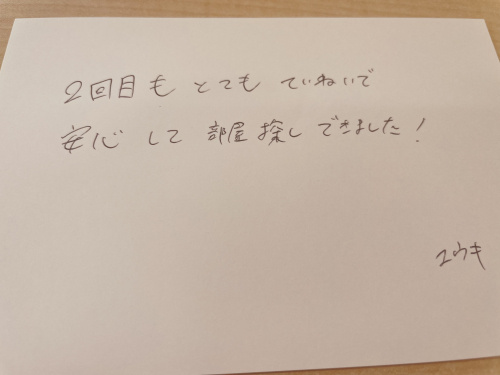 2回目も とても ていねいで
安心 して 部屋 探し できました!
ユウキ